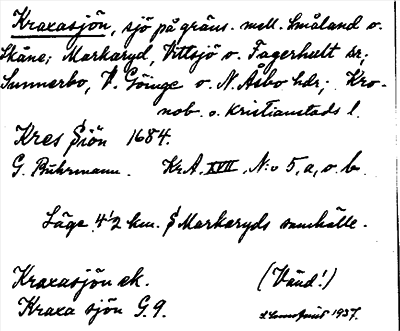 Kraxasjön, sjö på gräns. mell. Småland o.
Skåne; Markaryd, Vittsjö o. Fagerhult sr;
Sunnerbo, V. Göinge o. N. Åsbo hdr; Kro-
nob. o. Kristianstads l.
Kres Siön 1684.
G. Buhrmann. Kr.A. XVII, N:o 5, a, o b.
Läge 4½ km. S Markaryds samhälle.
Kraxasjön ek. (Vänd!)
Kraxa sjön G.9. 1937.